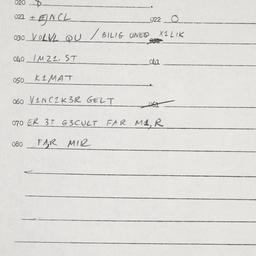 020
021 ± EJNCL 022 O
030 VOLVL QU / BILIG UNEQ X1LIK
040 IMZ1. ST 042
050 K1MAT
060 V1NC1K3R GELT
070 ER 3T G3CULT FAR M1,R
080 FAR MIR